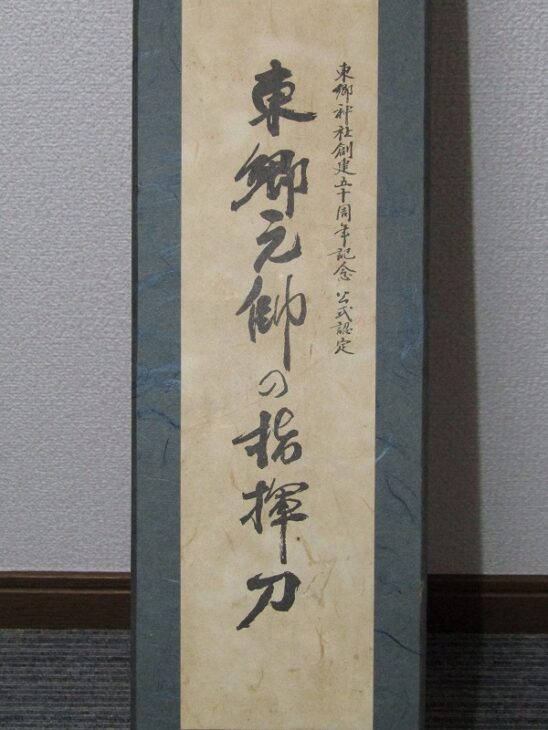 東郷神社創建五十周年記念 公式認定
東郷元帥の指揮刀